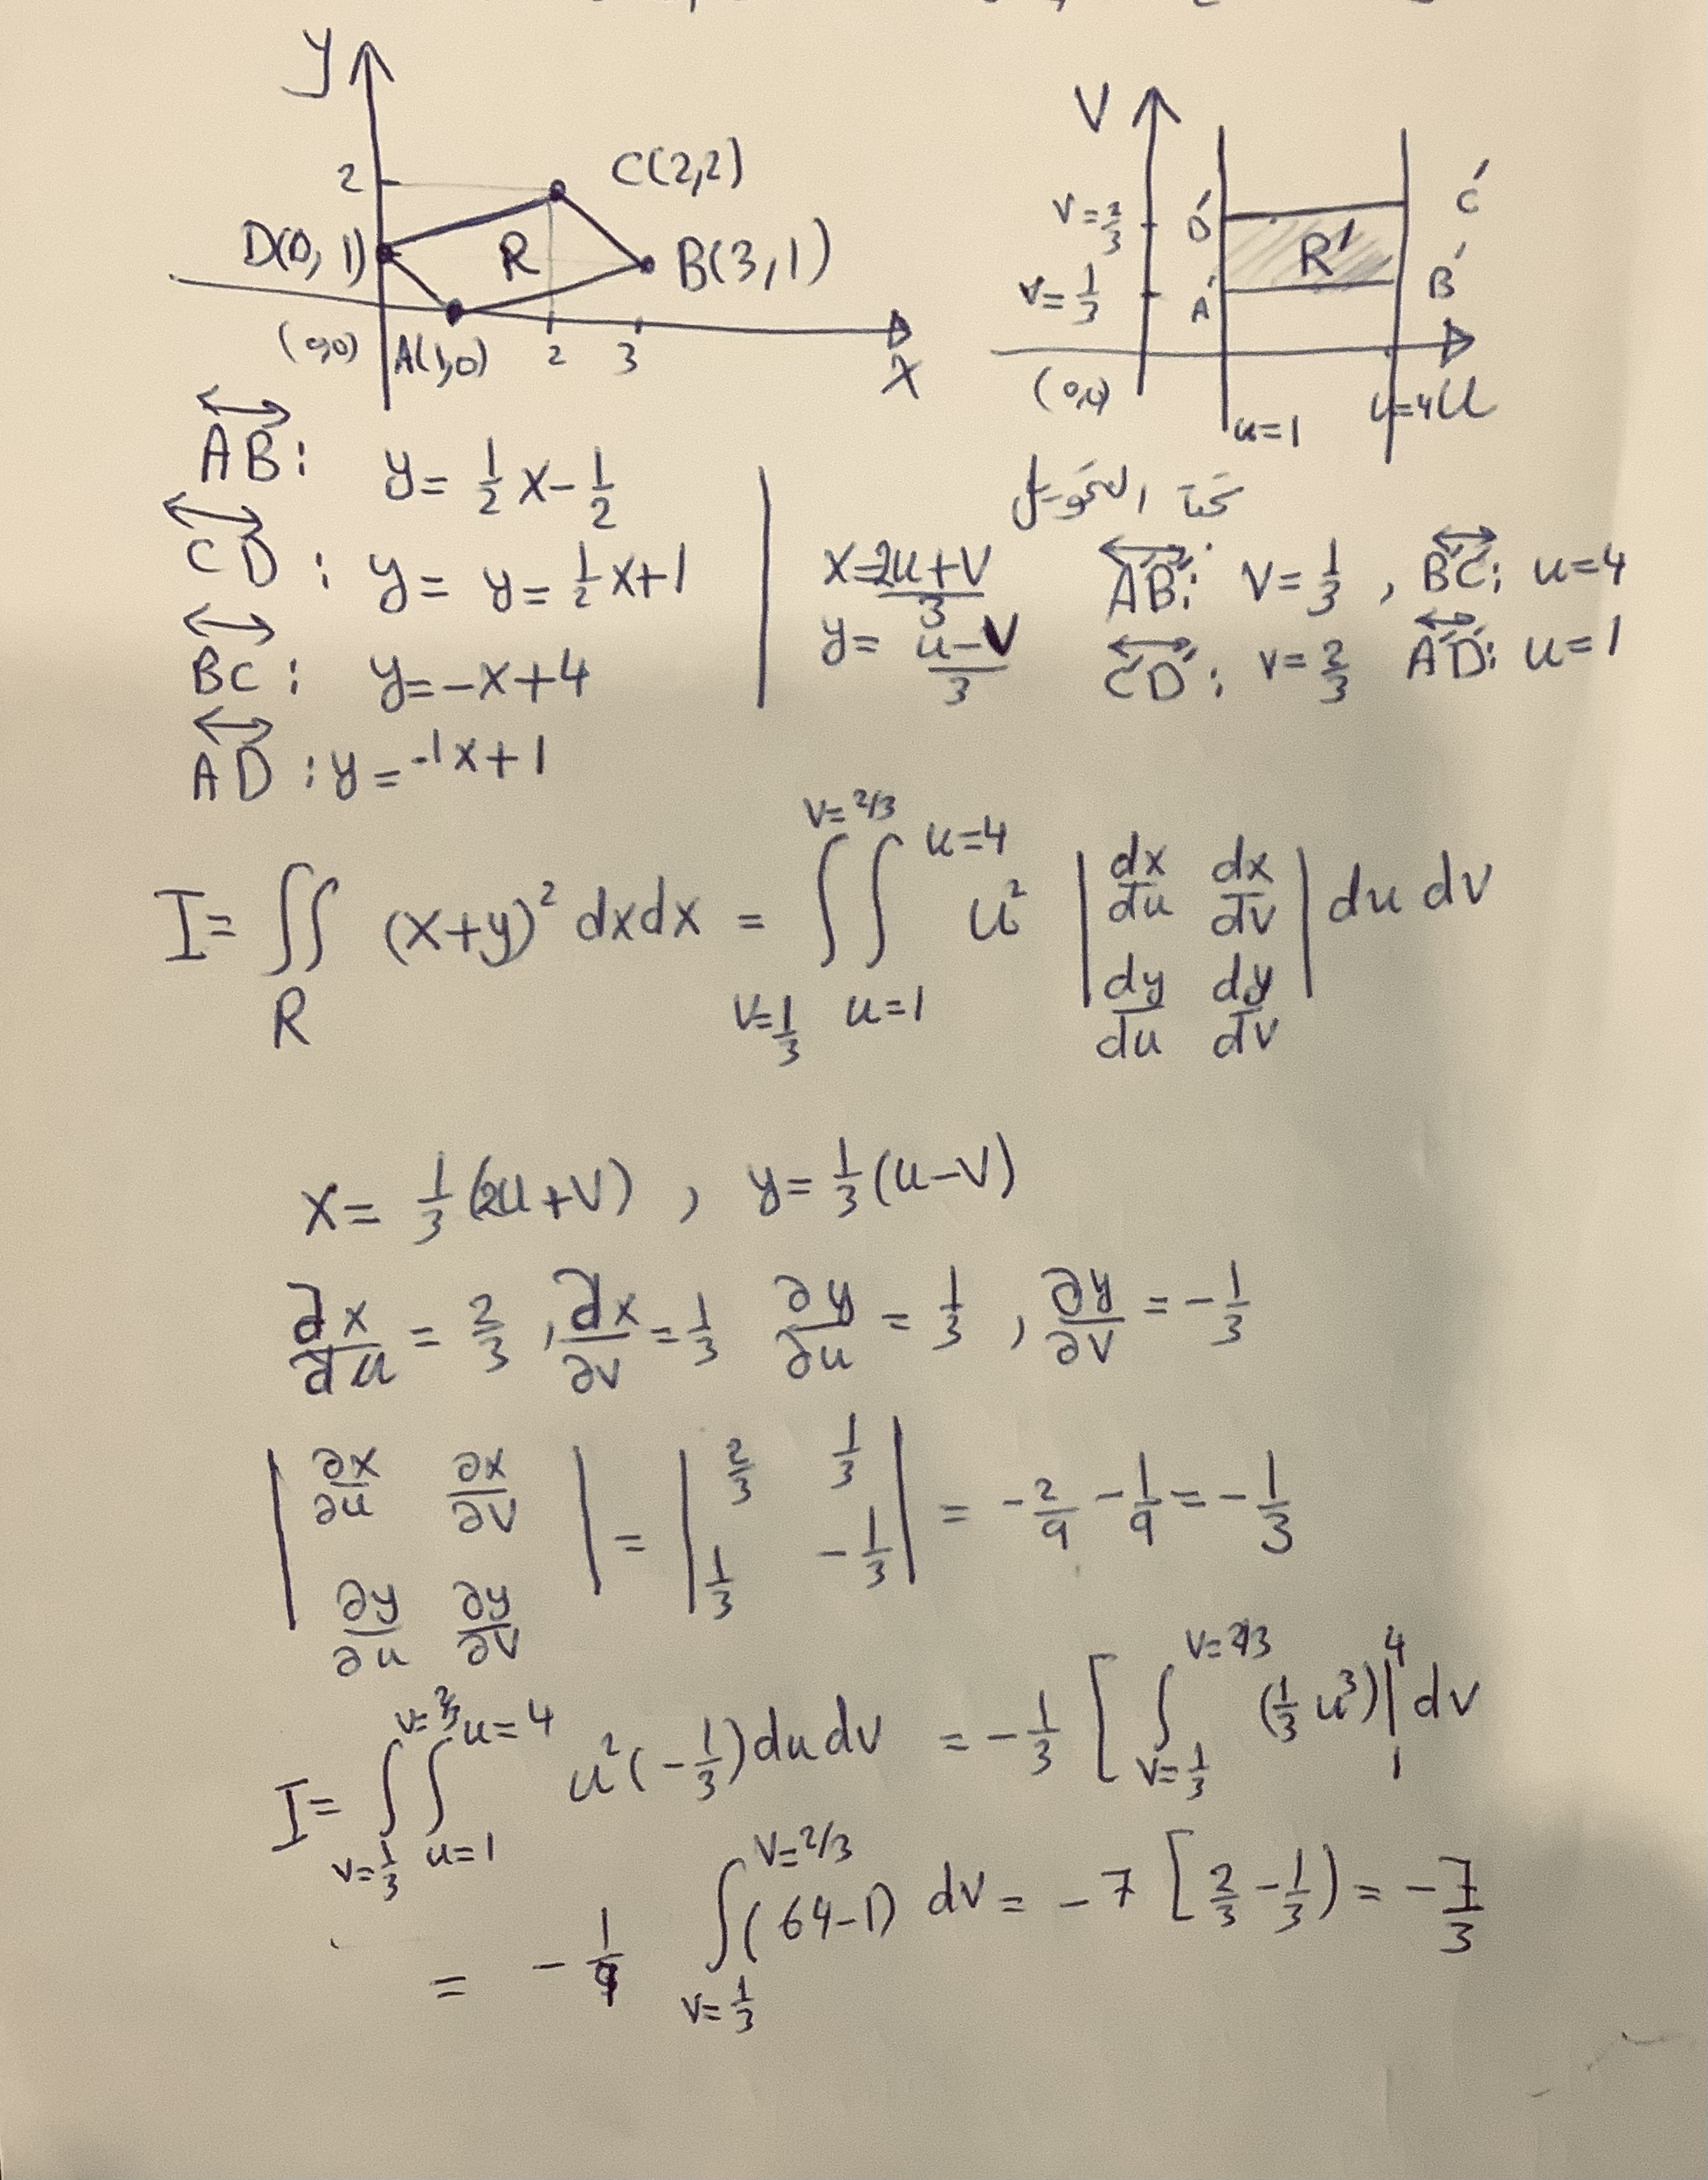 y
V
2
C(2,2)
D(0, 1)
R
B(3,1)
(0,0)
A(1,0)
2
3
X
V = 2/3
D'
C'
R'
V = 1/3
A'
B'
u=1
u=4
U
AB: y = 1/2 x - 1/2
CD: y = y = 1/2 x + 1
BC: y = -x + 4
AD: y = -1x + 1
x = (2u+V)/3
y = (u-V)/3
تحت التحويل
A'B': V = 1/3, B'C': u = 4
C'D': V = 2/3 A'D': u = 1
I = ∬_R (x+y)² dxdx = ∫_{V=1/3}^{V=2/3} ∫_{u=1}^{u=4} u² | dx/du dx/dv ; dy/du dy/dv | du dv
x = 1/3 (2u+V) , y = 1/3 (u-V)
∂x/∂u = 2/3 , ∂x/∂v = 1/3 ∂y/∂u = 1/3 , ∂y/∂v = -1/3
| ∂x/∂u ∂x/∂v ; ∂y/∂u ∂y/∂v | = | 2/3 1/3 ; 1/3 -1/3 | = -2/9 - 1/9 = -1/3
I = ∫_{v=1/3}^{v=2/3} ∫_{u=1}^{u=4} u² (-1/3) du dv = -1/3 [ ∫_{V=1/3}^{V=2/3} (1/3 u³)|_1^4 dv
= -1/9 ∫_{V=1/3}^{V=2/3} (64-1) dv = -7 [2/3 - 1/3) = -7/3